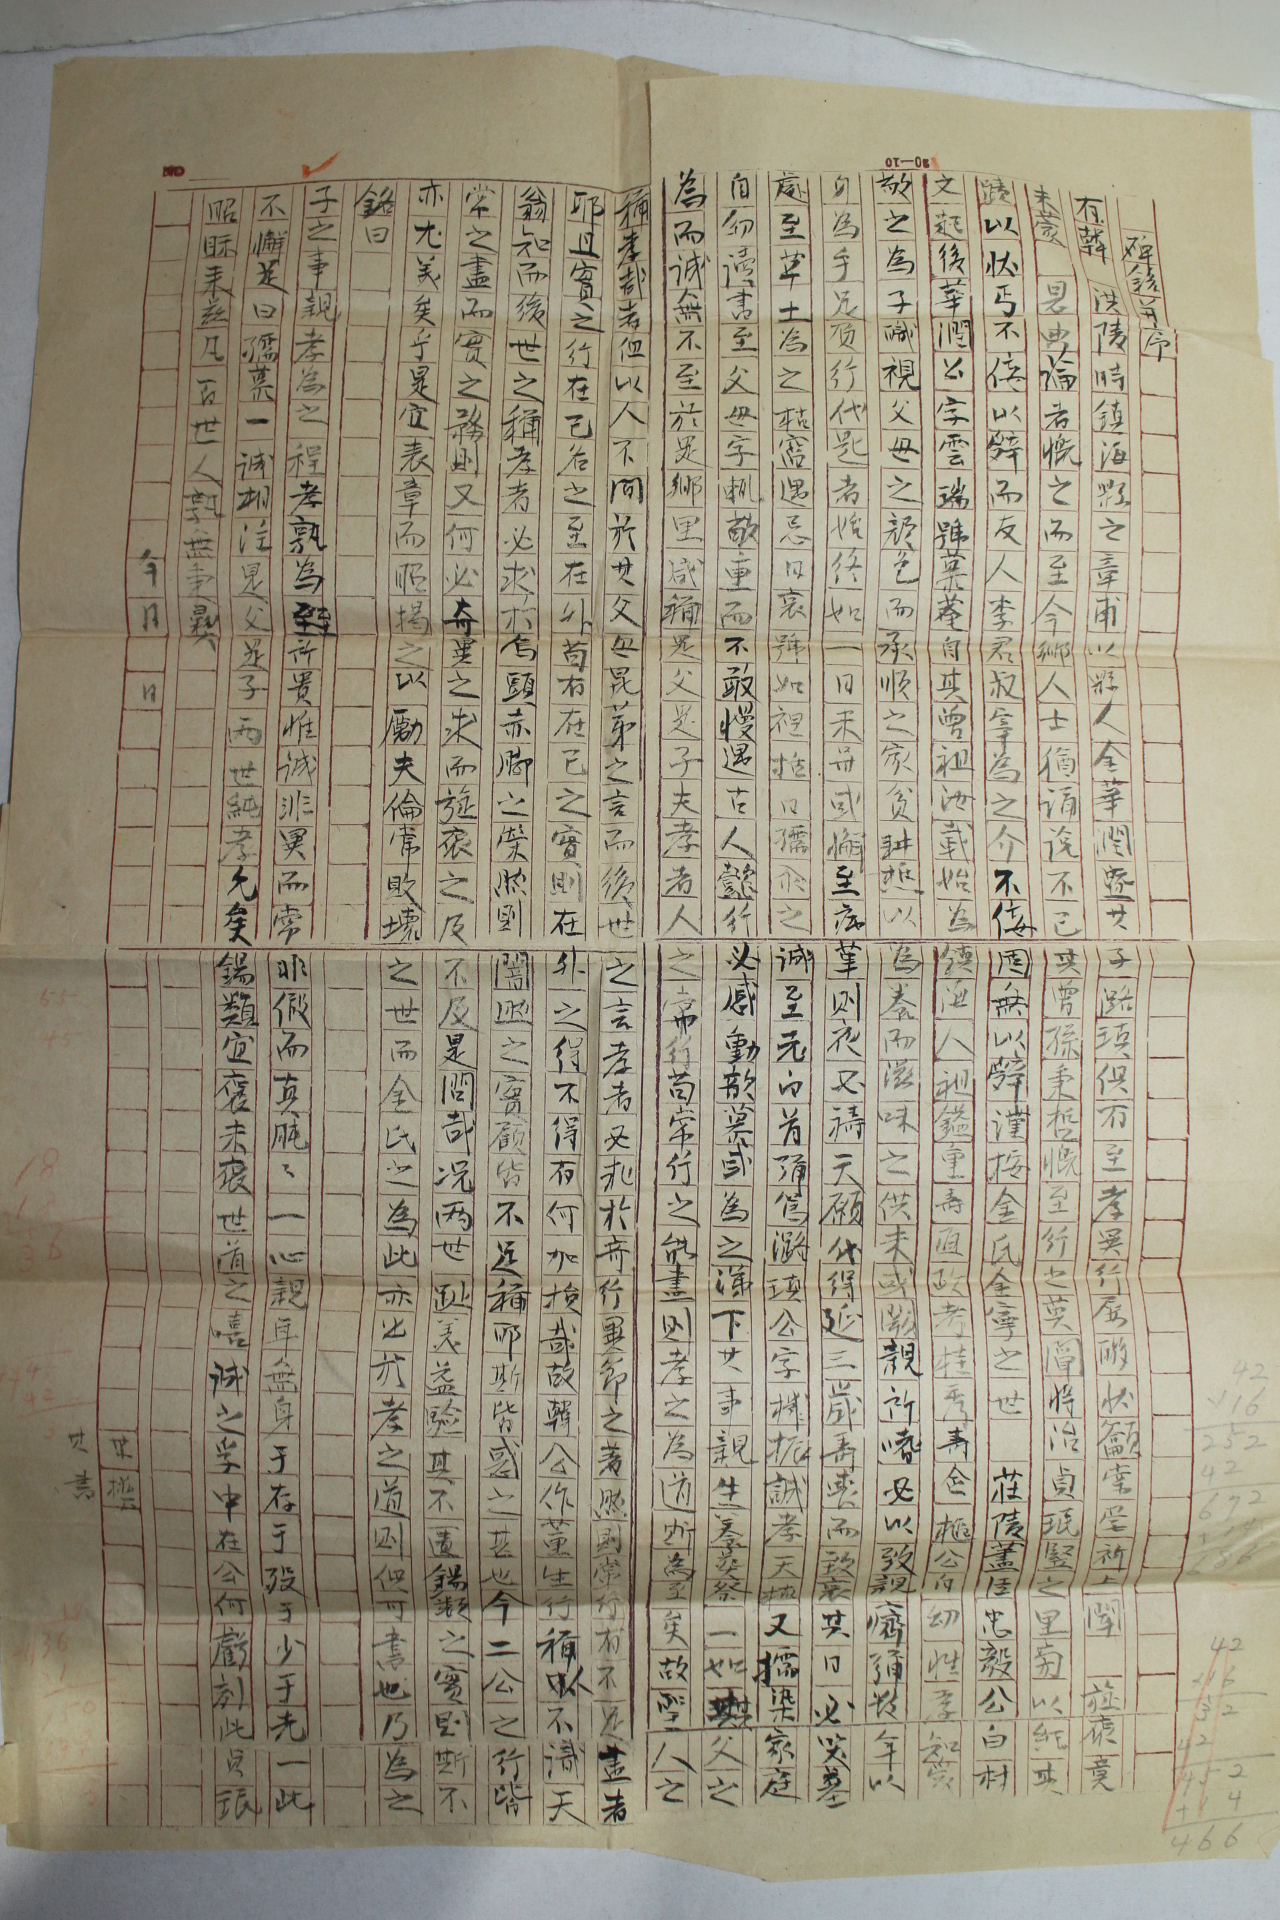 碑銘並序
有韓 洪陵時鎮海縣之章甫以縣人金華潤曁其子潞瑱俱有至孝異行屢酬狀籲棠營祈上聞 旌褒竟
未蒙 恩典論者慨之而至今鄉人士猶誦說不已其曾孫秉哲慨至行之莫闡將治貞珉竪之里旁以純其
蹟以狀丐不侫以辭而友人李君叔宰為之介不侫固無以辭謹按金氏金寧之世 莊陵藎臣忠毅公白村
文起後華潤公字雲瑞號菊菴自其曾祖汝載始為鎮海人祖鎰重壽通政考桂秀壽僉樞公自幼性孝知愛
敬之為子職視父母之顔色而承順之家貧耕樵以為養而滋味之供未或闕親所嗜必以致親癠彌數年以
身為手足須行代匙者始終如一日未甞或懈至疾革則夜必禱天願代得延三歲再喪而致哀其日必哭墓
處至草土為之枯焉遇忌日哀號如袒括日孺慕之誠至元白首彌篤潞瑱公字誠孝天植又擩染家庭
自幼讀書至父母字輒敬重而不敢慢遇古人懿行必感動歆慕或為之涕下其事親生養死祭一如其父之
為而誠無不至於是鄉里咸稱是父是子夫孝者人之常行苟常行之能盡則孝之為道斯為至矣故聖人之
稱孝哉者但以人不間於其父母昆弟之言而後世之言孝者必求於奇行異節之著然則常行有不足盡者
耶且實之行在己名之至在外苟有在己之實則在外之得不得有何加損哉故韓公作董生行稱以不識天
翁知而後世之稱孝者必求於烏頭赤脚之榮然則闇然之實顧皆不足稱耶斯皆惑之甚也今二公之行皆
常之盡而實之務則又何必奇異之求而旌褒之及不及是問哉況兩世趾美益驗其不匱錫類之實則斯不
亦尤美矣乎是宜表章而昭揭之以勵夫倫常敗壞之世而金氏之為此亦出於孝之道則但可書也乃為之
銘曰
子之事親孝為之程孝孰為至所貴惟誠非異而常非假而真肫々一心親耳無身于存于歿于少于老一此
不懈是曰孺慕一誠相注是父是子兩世純孝允矣錫類宜褒未褒世道之嘻誠之孚中在公何虧刻此貞珉
昭眎來玆凡百世人孰無秉彝
年 月 日
某 撰
某 書
30—10
NO
42
×16
252
42
672